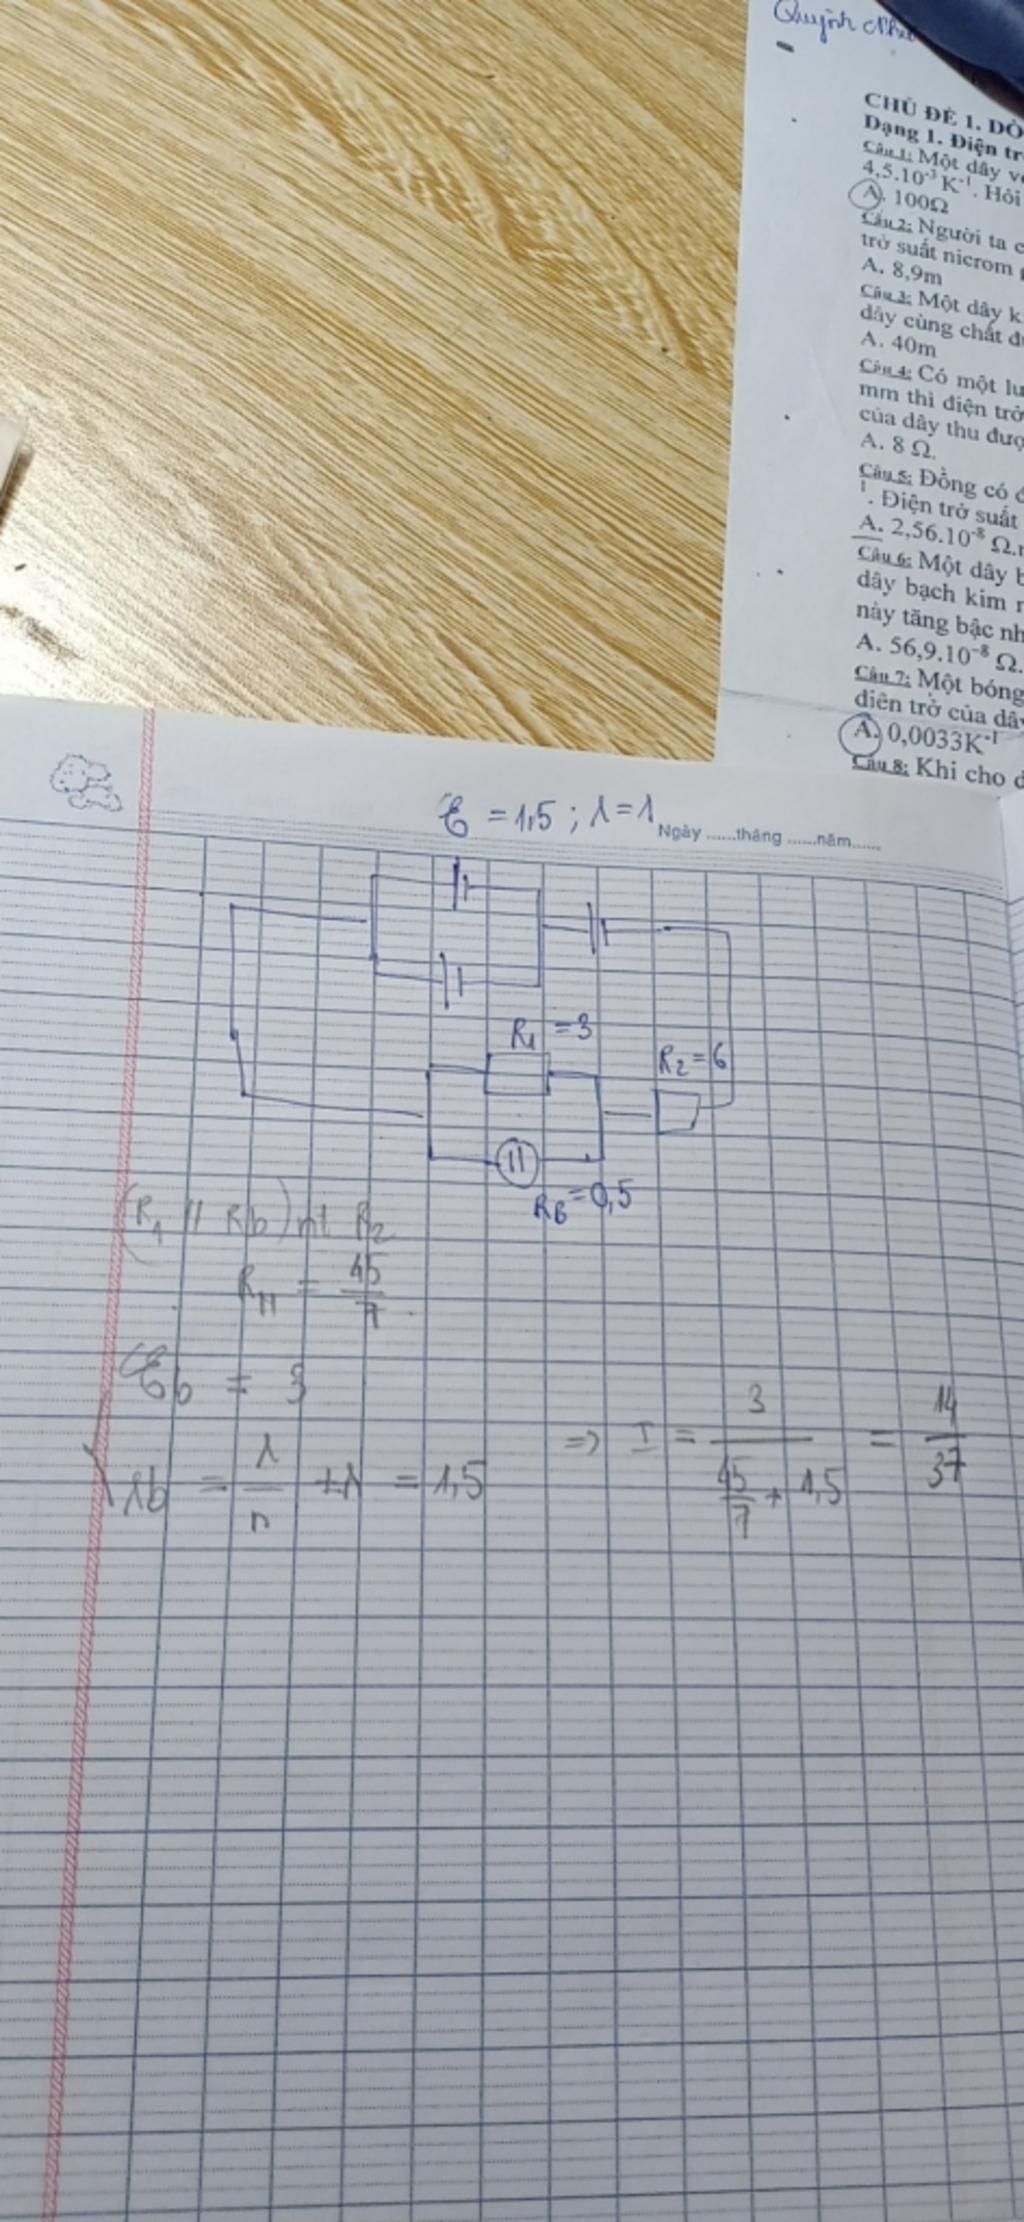 Quỳnh Như
CHỦ ĐỀ 1. DÒ
Dạng 1. Điện tr
Câu 1: Một dây v
4,5.10⁻³K⁻¹. Hỏi
A. 100Ω
Câu 2: Người ta c
trở suất nicrom
A. 8,9m
Câu 3: Một dây k
dây cùng chất đ
A. 40m
Câu 4: Có một lư
mm thì điện trở
của dây thu đượ
A. 8 Ω.
Câu 5: Đồng có
¹. Điện trở suất
A. 2,56.10⁻⁸ Ω.
Câu 6: Một dây b
dây bạch kim
này tăng bậc nh
A. 56,9.10⁻⁸ Ω.
Câu 7: Một bóng
điên trở của dâ
A. 0,0033K⁻¹
Câu 8: Khi cho
ℰ = 1,5 ; r = 1
Ngày ......tháng ......năm......
R₁ = 3
R₂ = 6
R_B = 0,5
(R₁ // Rb) nt R₂
R_N = 45/7
ℰb = 3
rb = r/n + r = 1,5 => I = 3/(45/7 + 1,5) = 14/37